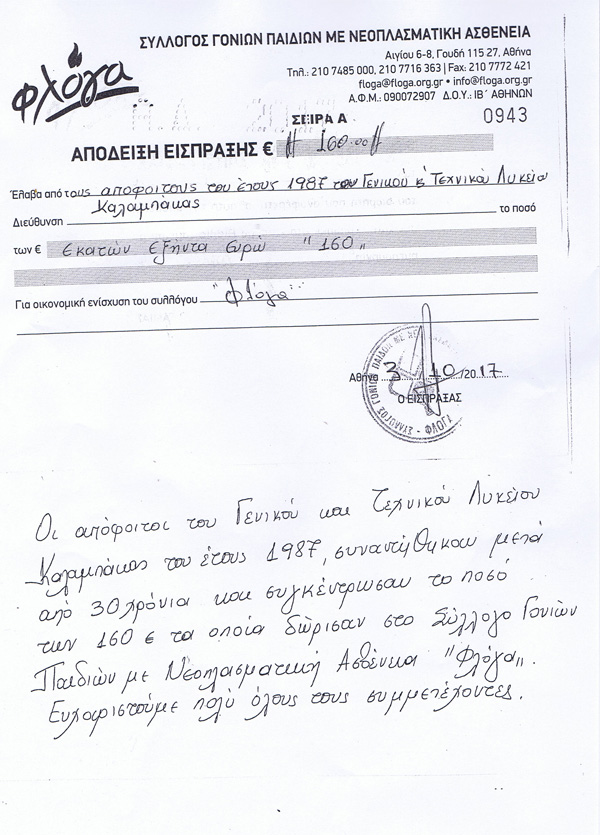 φλόγα
ΣΥΛΛΟΓΟΣ ΓΟΝΙΩΝ ΠΑΙΔΙΩΝ ΜΕ ΝΕΟΠΛΑΣΜΑΤΙΚΗ ΑΣΘΕΝΕΙΑ
Αιγίου 6-8, Γουδή 115 27, Αθήνα
Τηλ.: 210 7485 000, 210 7716 363 | Fax: 210 7772 421
floga@floga.org.gr • info@floga.org.gr
Α.Φ.Μ.: 090072907 Δ.Ο.Υ.: ΙΒ΄ ΑΘΗΝΩΝ
ΣΕΙΡΑ Α 0943
ΑΠΟΔΕΙΞΗ ΕΙΣΠΡΑΞΗΣ € # 160.00 #
Έλαβα από τους απόφοιτους του έτους 1987 του Γενικού & Τεχνικού Λυκείο
Διεύθυνση Καλαμπάκας το ποσό
των € Εκατών Εξήντα Ευρώ "160"
Για οικονομική ενίσχυση του συλλόγου "Φλόγα"
Αθήνα 3/10/2017
Ο ΕΙΣΠΡΑΞΑΣ
ΣΥΛΛΟΓΟΣ ΓΟΝΙΩΝ ΠΑΙΔΙΩΝ ΜΕ - ΦΛΟΓΑ
Οι απόφοιτοι του Γενικού και Τεχνικού Λυκείου
Καλαμπάκας του έτους 1987, συναντήθηκαν μετά
από 30 χρόνια και συγκέντρωσαν το ποσό
των 160 € τα οποία δώρισαν στο Σύλλογο Γονιών
Παιδιών με Νεοπλασματική Ασθένεια "Φλόγα".
Ευχαριστούμε πολύ όλους τους συμμετέχοντες.